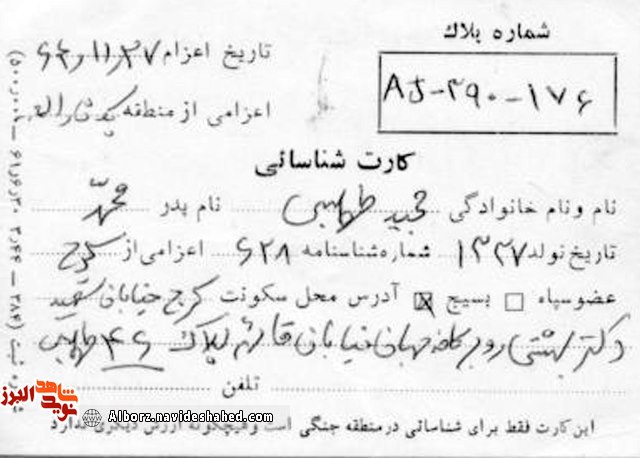 شماره پلاك
AJ-۳۹۰-۱۷۶
تاریخ اعزام ۶۴٫۱۱٫۲۷
اعزامی از منطقه یک ثارالله
کارت شناسائی
نام ونام خانوادگی مجید طهماسبی نام پدر محمد
تاریخ تولد ۱۳۲۷ شماره شناسنامه ۶۲۸ اعزامی از کرج
عضو سپاه بسیج آدرس محل سکونت کرج خیابان شهید
دکتر بهشتی روبر خیابان پلاک ۴۶
تلفن
این کارت فقط برای شناسائی در منطقه جنگی است و هیچگونه ارزش دیگری ندارد
شاهد
نوید
البرز
Alborz.navideshahed.com